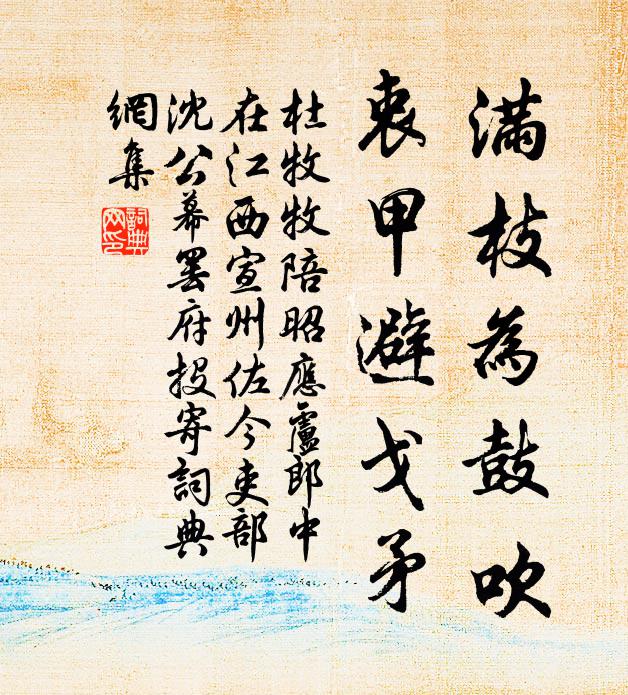 滿枝為鼓吹
衷甲避戈矛
杜牧牧陪昭應盧郎中
在江西宣州佐今吏部
沈公幕罷府投寄詞典
網集
詞典網印